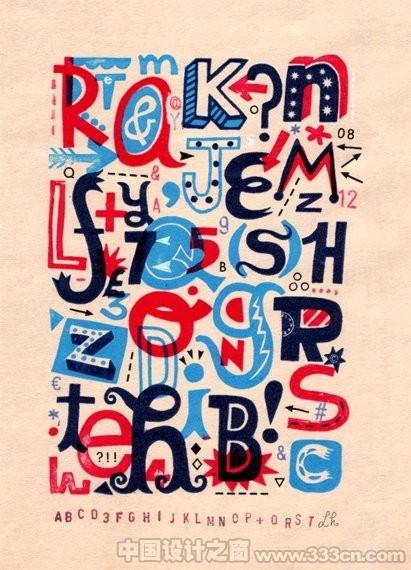 m
R T e a & K ? n
@ Y
J E M 08
Q & S z 12
L f + y A ’
7 Q 5 9 B ( S ) H
E S
O g N R ©
Z D
€ * i S #
t e h B ! & C
w ?!!
ABCD3FGHIJKLMNOP+QRST Lh
中国设计之窗 www.333cn.com